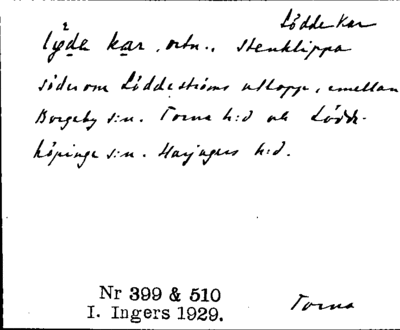 Lödde Kar
lyda kar, ortn., stenklippa
söder om Löddeströms utlopp, emellan
Borgeby s:n. Torna h:d och Lödde-
köpinge s:n. Harjagers h:d.
Nr 399 & 510
I. Ingers 1929.
Torna